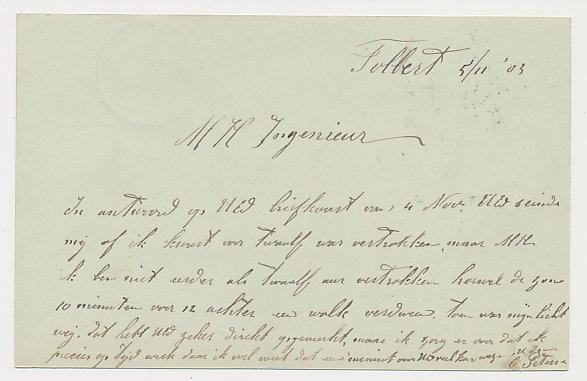 Tolbert 5/11 '03
M H Ingenieur
In antwoord op UEd briefkaart van 4 Nov. UEd seinde
mij of ik kwart voor twaalf was vertrokken, maar MH
ik ben niet eerder als twaalf uur vertrokken hoewel de zon
10 minuten voor 12 achter een wolk verdween, toen was mijn licht
weg. dat hebt UEd zeker direkt gemerkt, maar ik zorg er voor dat ik
precies op tijd werk daar ik wel weet dat een moment van UEd